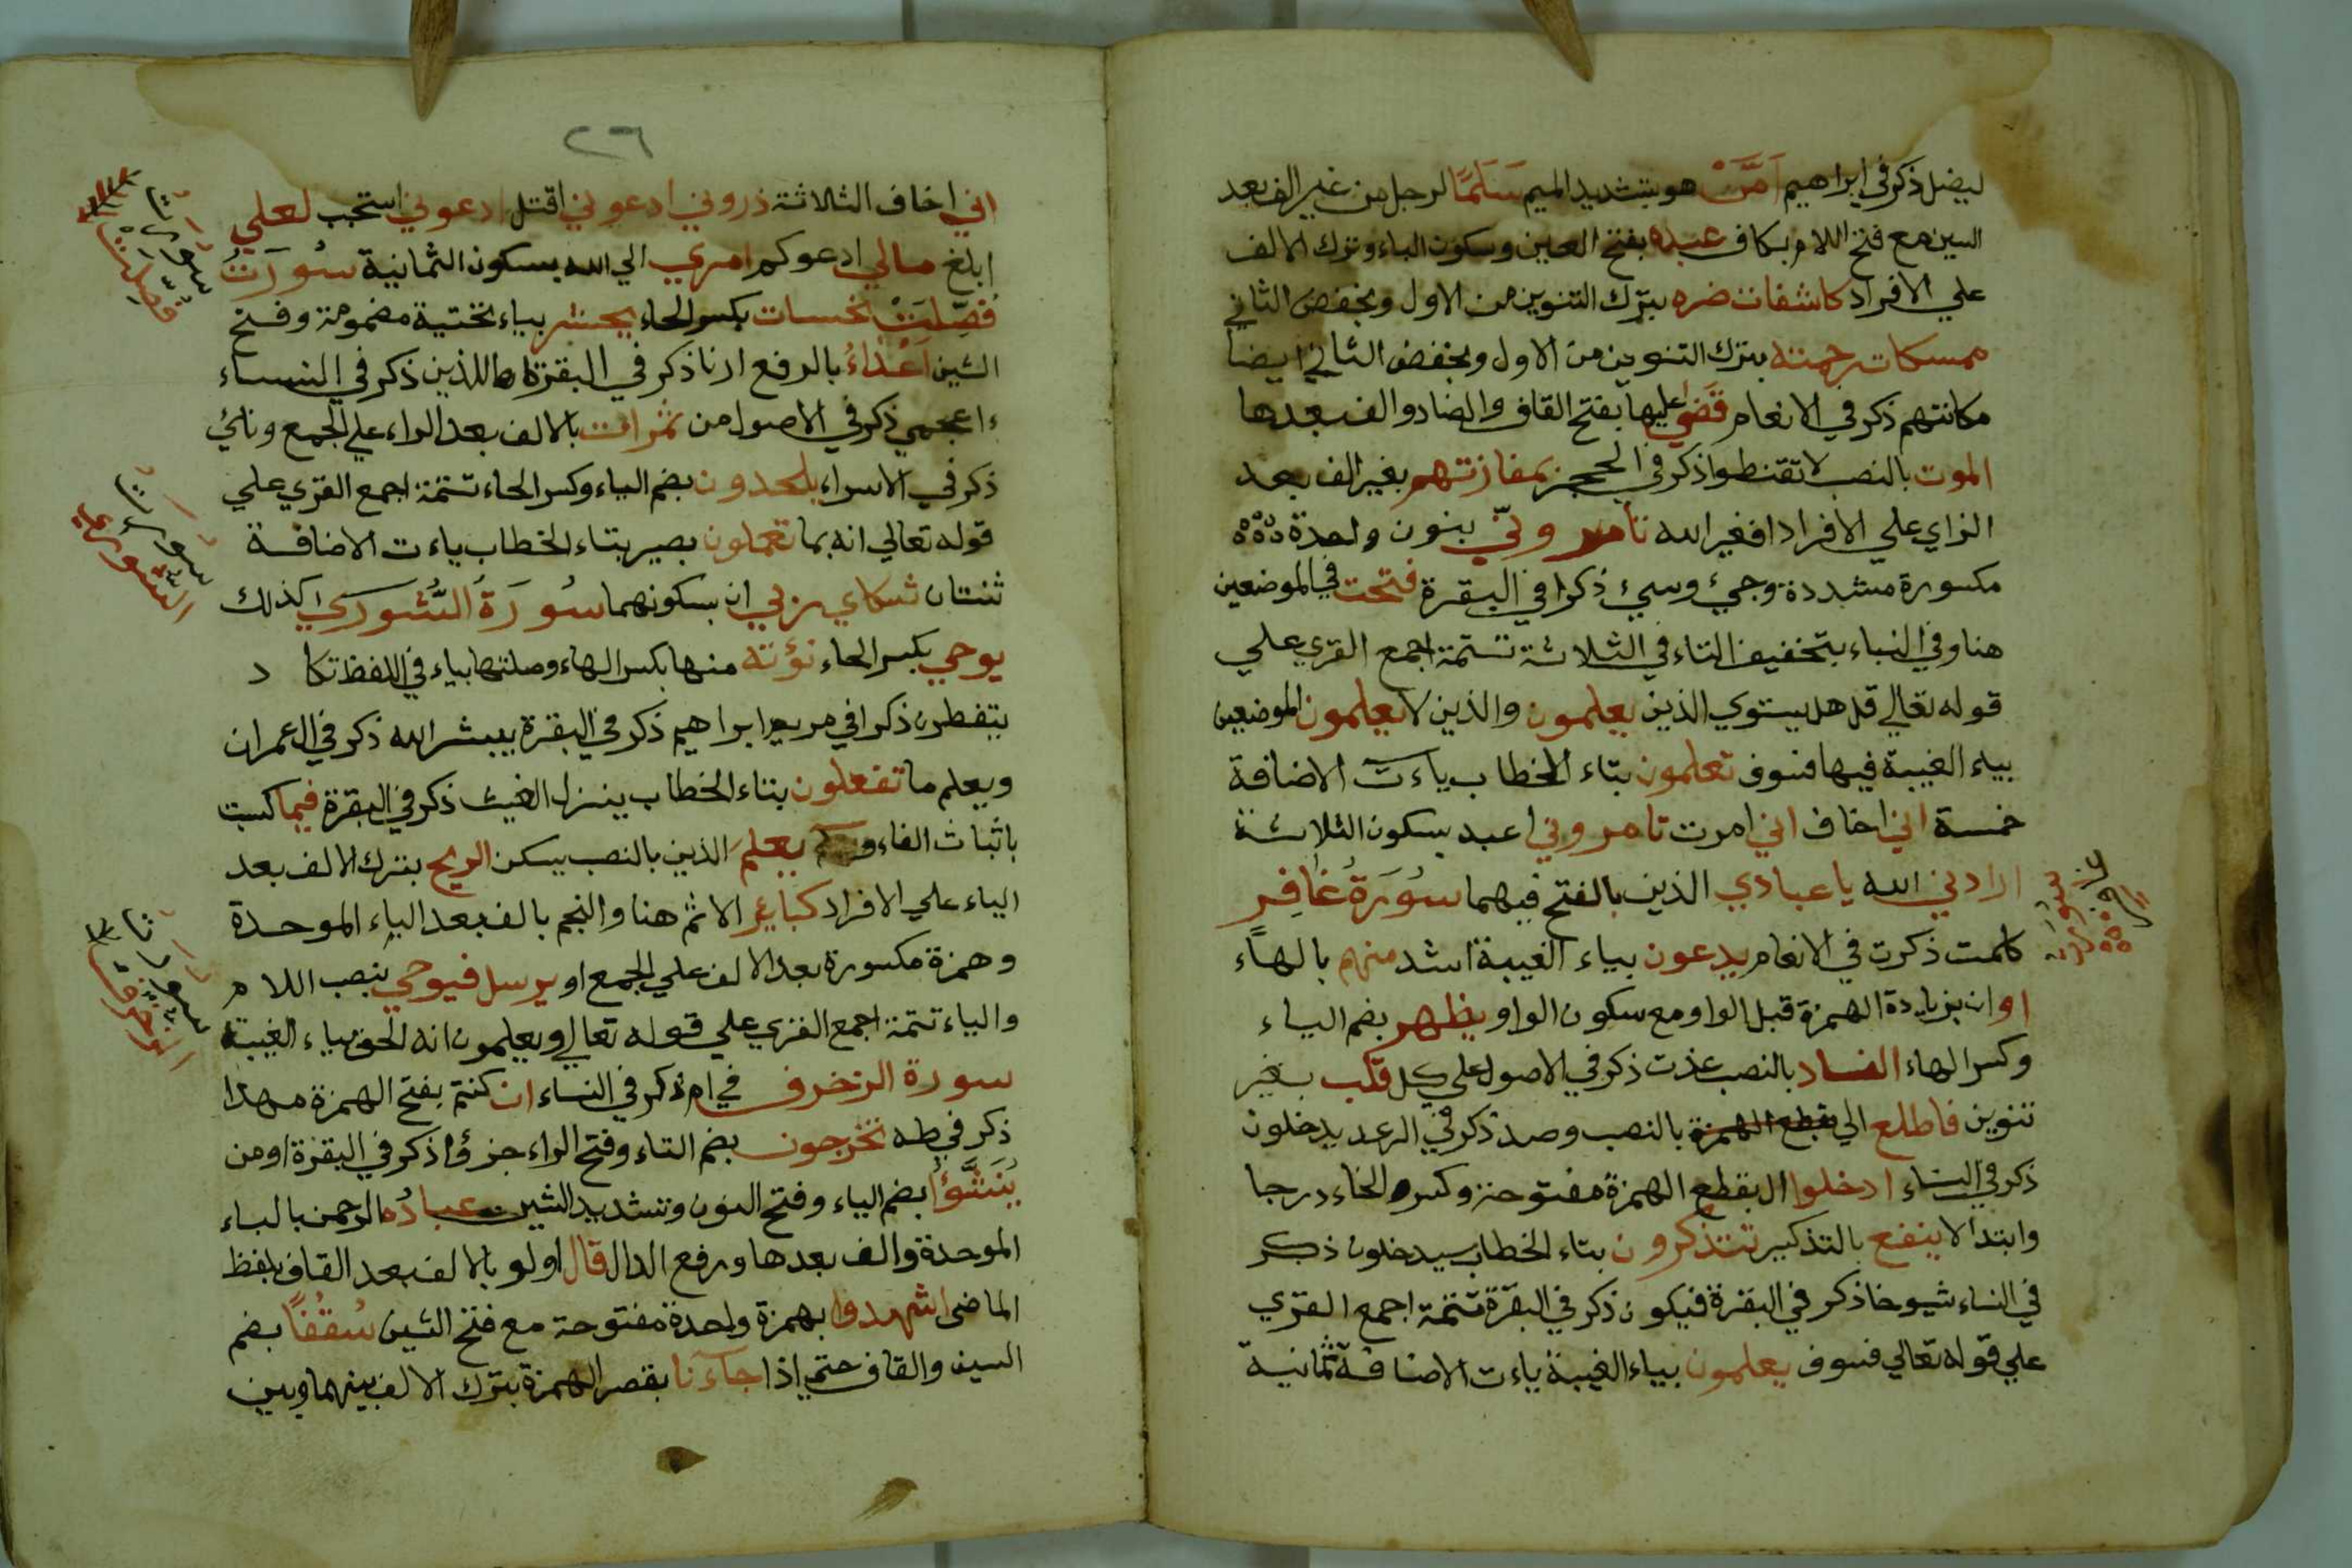 ليضل ذكر في ابراهيم اَمَّنْ هو بتشديد الميم سَلَمًا لرجل من غير الف بعد
السين مع فتح اللام بكاف عبده بفتح العين وسكون الباء وترك الالف
علي الافراد كاشفات ضره بترك التنوين من الاول وبخفض الثاني
ممسكات رحمته بترك التنوين من الاول وبخفض الثاني ايضا
مكانتهم ذكر في الانعام قَضَي عليها بفتح القاف والضاد والف بعدها
الموت بالنصب لا تقنطوا ذكر في الحجر بمفازتهم بغير الف بعد
الزاي علي الافراد افغير الله تأمرونّي بنون واحدة
مكسورة مشددة وجيء وسيء ذكرا في البقرة فتحت في الموضعين
هنا وفي النباء بتخفيف التاء في الثلاثة تتمة اجمع القري علي
قوله تعالي قل هل يستوي الذين يعلمون والذين لا يعلمون الموضعين
بياء الغيبة فيها فسوف تعلمون بتاء الخطاب ياءت الاضافة
خمسة اني اخاف اني امرت تامروني اعبد بسكون الثلاثة
ارادني الله يا عبادي الذين بالفتح فيهما سُورَةُ غَافِر
كلمت ذكرت في الانعام يدعون بياء الغيبة اشد منهم بالهاء
او ان بزيادة الهمزة قبل الواو مع سكون الواو يظهر بضم الياء
وكسر الهاء الفساد بالنصب عذت ذكر في الاصول علي كل قلب بغير
تنوين فاطلع الي بقطع الهمزة بالنصب وصد ذكر في الرعد يدخلون
ذكر في النساء ادخلوا ال بقطع الهمزة مفتوحة وكسر الخاء درجا
وابتدا لا ينفع بالتذكير تتذكرون بتاء الخطاب سيدخلون ذكر
في النساء شيوخا ذكر في البقرة فيكون ذكر في البقرة تتمة اجمع القري
علي قوله تعالي فسوف يعلمون بياء الغيبة ياءت الاضافة ثمانية
٢٦
اني اخاف الثلاثة ذروني ادعوني اقتل ادعوني استجب لعلي
ابلغ مالي ادعوكم امري الي الله بسكون الثمانية سُورَتُ
فُصِّلَتْ نحسات بكسر الحاء يحشر بياء تحتية مضمومة وفتح
الشين اَعْدَاءُ بالرفع ارنا ذكر في البقرة اللذين ذكر في النساء
ءاعجمي ذكر في الاصول من ثمرات بالالف بعد الراء علي الجمع ونائ
ذكر في الاسراء يلحدون بضم الياء وكسر الحاء تتمة اجمع القري علي
قوله تعالي انه بما تعملون بصير بتاء الخطاب ياءت الاضافة
ثنتان شركاي ربي ان بسكونهما سُورَةُ الشُّورَي كذلك
يوحي بكسر الحاء نؤته منها بكسر الهاء وصلتها بياء في اللفظ تكاد
يتفطرن ذكرا في مريم ابراهيم ذكر في البقرة يبشر الله ذكر في ال عمران
ويعلم ما تفعلون بتاء الخطاب ينزل الغيث ذكر في البقرة فبما كسبت
باثبات الفاء يعلم الذين بالنصب يسكن الريح بترك الالف بعد
الياء علي الافراد كبائر الاثم هنا والنجم بالف بعد الباء الموحدة
وهمزة مكسورة بعد الالف علي الجمع او يرسل فيوحي بنصب اللام
والياء تتمة اجمع القري علي قوله تعالي ويعلمون انه الحق بياء الغيبة
سورة الزخرف في ام ذكر في النساء ان كنتم بفتح الهمزة مهدا
ذكر في طه تخرجون بضم التاء وفتح الراء جزؤا ذكر في البقرة اومن
يُنَشَّؤُا بضم الياء وفتح النون وتشديد الشين عبادُ الرحمن بالباء
الموحدة والف بعدها ورفع الدال قال اولو بالالف بعد القاف بلفظ
الماضي اشهدوا بهمزة واحدة مفتوحة مع فتح الشين سُقُفًا بضم
السين والقاف حتي اذا جآءنا بقصر الهمزة بترك الالف بينهما وبين